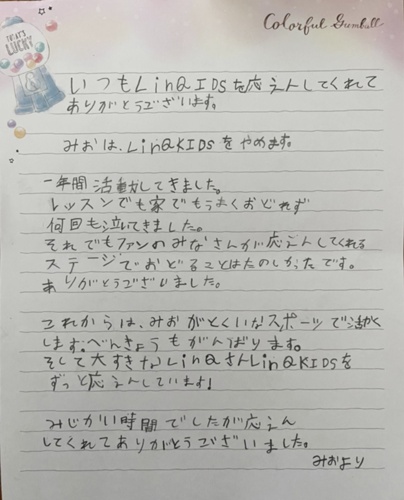 Colorful Gumball
THAT'S
LUCKY
いつもLinQKIDSを応えんしてくれて
ありがとうございます。
みおは、LinQKIDSをやめます。
一年間活動してきました。
レッスンでも家でもうまくおどれず
何回も泣いてきました。
それでもファンのみなさんが応えんしてくれる
ステージでおどることはたのしかったです。
ありがとうございました。
これからは、みおがとくいなスポーツで活やく
します。べんきょうもがんばります。
そして大すきなLinQさんLinQKIDSを
ずっと応えんしています!
みじかい時間でしたが応えん
してくれてありがとうございました。
みおより